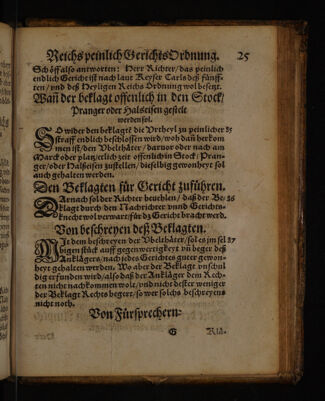 Reichs peinlich Gerichts Ordnung. 25
Schöff also antworten: Herr Richter/ das peinlich
endlich Gericht ist nach laut Keyser Carls deß fünff-
ten/ vnd deß Heyligen Reichs Ordnung wol besetzt.
Wañ der beklagt offenlich in den Stock/
Pranger oder Halseisen gestelt
werden sol.
SO wider den beklagte die Vrtheyl zu peinlicher 85
straff endlich beschlossen wird/ wo es dañ herkom
men ist/ den Vbelthäter/ daruor oder nach am
Marckt oder platz/ etlich zeit offentlich in Stock/ Pran-
ger oder Halseisen zustellen/ dieselbig gewonheyt sol
auch gehalten werden.
Den Beklagten für Gericht zuführen.
DArnach sol der Richter beuehlen/ daß der Be- 86
klagt durch den Nachrichter vnnd Gerichts-
knecht wol verwart/ für dz Gericht bracht werd.
Von beschreyen deß Beklagten.
MIt dem beschreyen der Vbelthäter/ sol es jm sel 87
bigen stück auff gegenwertigkeyt vñ beger deß
Anklägers/ nach jedes Gerichtes guter gewon-
heyt gehalten werden. Wo aber der Beklagt vnschul
dig erfunden wird/ also daß der Ankläger dem Rech-
ten nicht nachkommen wolt/ vnd nicht dester weniger
der Beklagt Rechts begert/ so wer solchs beschreyens
nicht noth.
Von Fürsprechern:
G Klä-